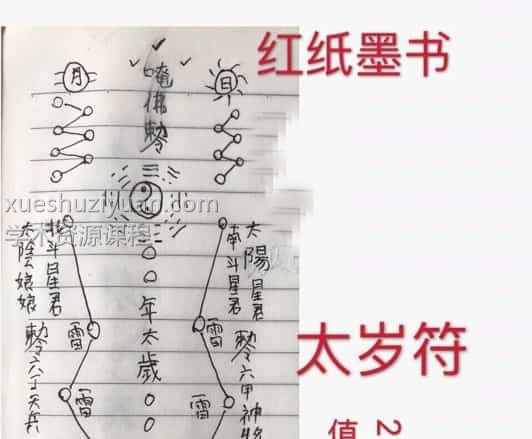 红纸墨书
月
日
唵佛勅
xueshuziyuan.com
学术资源课程
太陽星君
南斗星君
北斗星君
太陰娘娘
年太歲
雷
雷
雷
雷
勅六甲神將
勅六丁天兵
太岁符
值
2